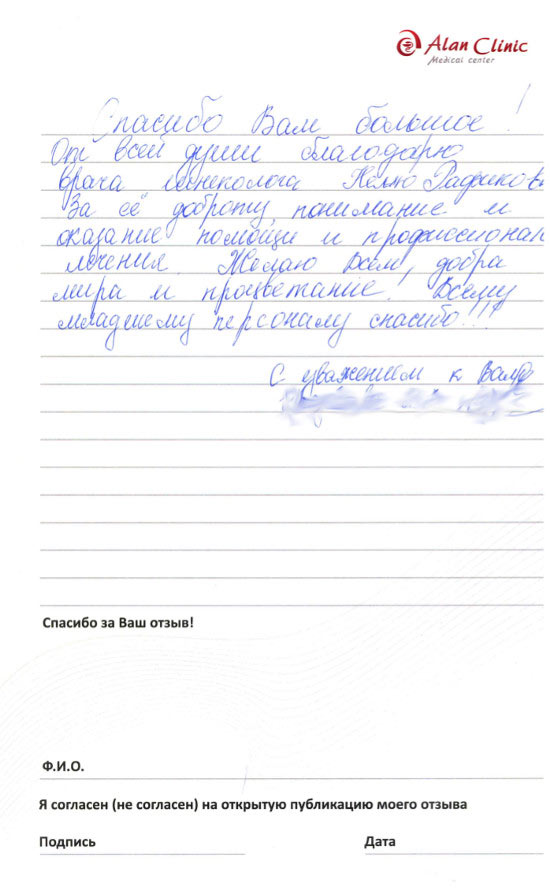 Alan Clinic
Medical center
Спасибо Вам большое!
От всей души благодарю
врача гинеколога Нелю Рафиковн
За её доброту, понимание и
оказание помощи и профессионал
лечения. Желаю Всем, добра
мира и процветание! Всему
младшему персоналу спасибо!!!
С уважением к Вам
Спасибо за Ваш отзыв!
Ф.И.О.
Я согласен (не согласен) на открытую публикацию моего отзыва
Подпись Дата